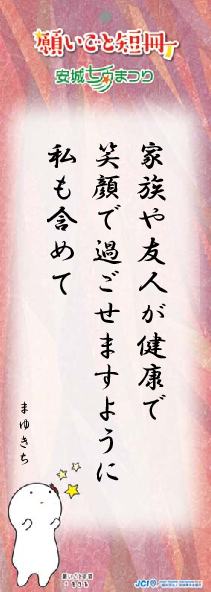 願いごと短冊
安城七夕まつり
家族や友人が健康で
笑顔で過ごせますように
私も含めて
まゆきち
JCI